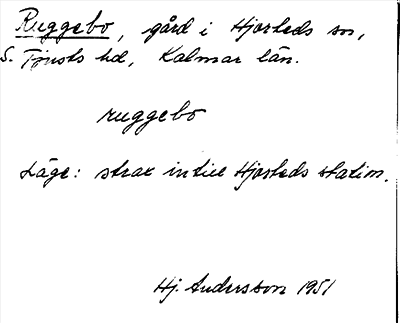 Ruggebo, gård i Hjorteds sn,
S. Tjusts hd, Kalmar län.
ruggebo
Läge: strax intill Hjorteds station.
Hj. Andersson 1951